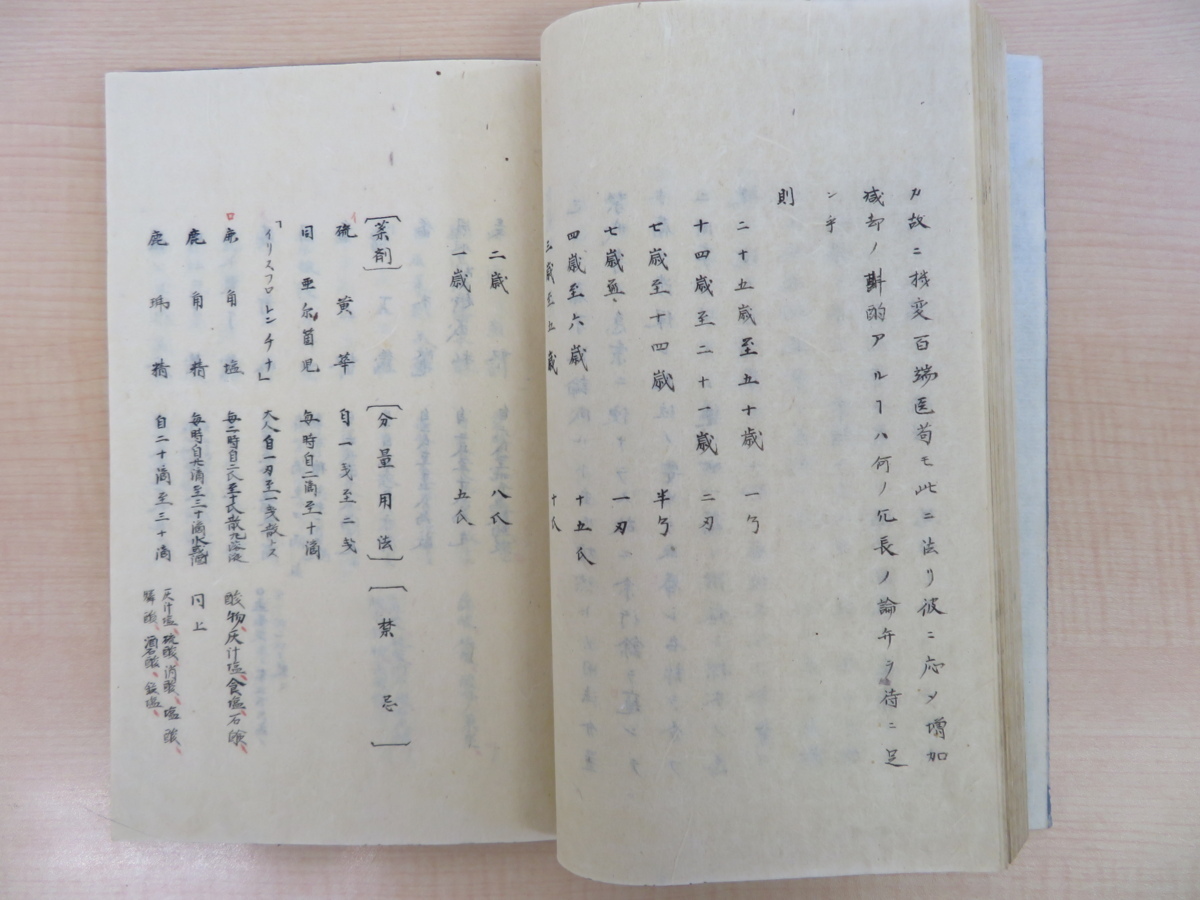 カ故ニ機変百端医苟モ此ニ法リ彼ニ応〆増加
減却ノ斟酌アルヿハ何ノ冗長ノ論弁ヲ待ニ足
ン乎
則
二十五歳至五十歳 一弓
十四歳至二十一歳 二刃
七歳至十四歳 半弓
七歳 一刃
四歳至六歳 十五氏
三歳至五歳 十氏
二歳 八氏
一歳 五氏
[薬剤] [分量用法] [禁忌]
イ 硫黄華 自一戔至二戔
同亜尔箇児 每時自二滴至十滴
「イリスフロレンチナ」 大人自一刃至一戔散トス
ロ 鹿角塩 每二時自二氏至十氏散丸溶液 酸物、灰汁塩、食塩、石鹸、
鹿角精 每時自六滴至三十滴 同上
鹿琥精 自二十滴至三十滴 灰汁塩、硫酸、消酸、塩酸、
酒石酸、